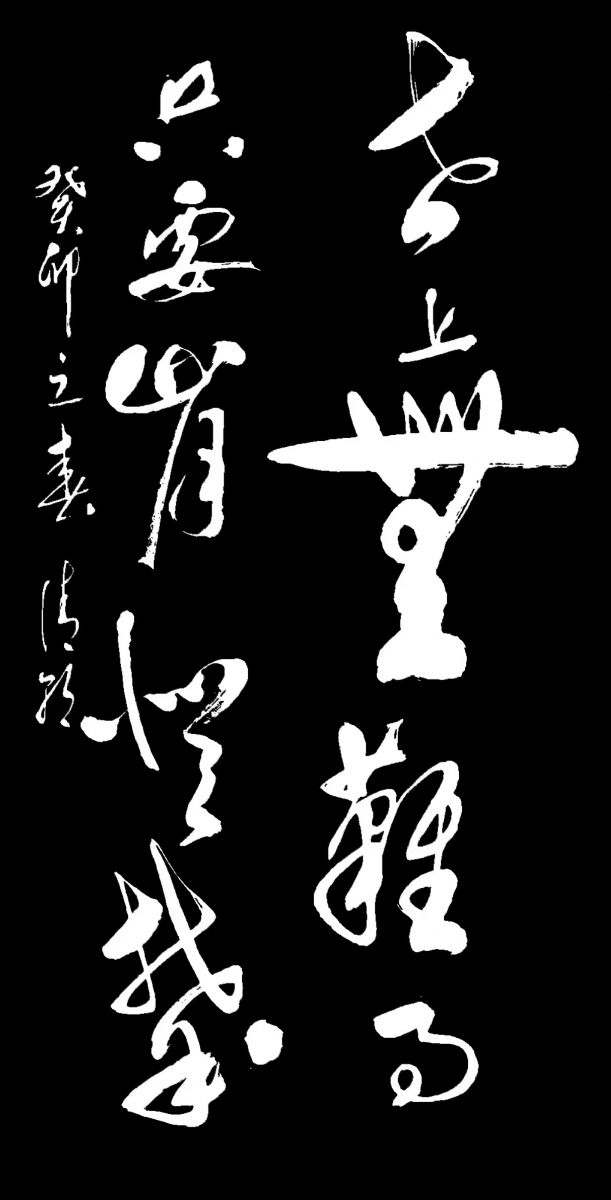 世上無難事
只要肯登攀
癸卯立春 清